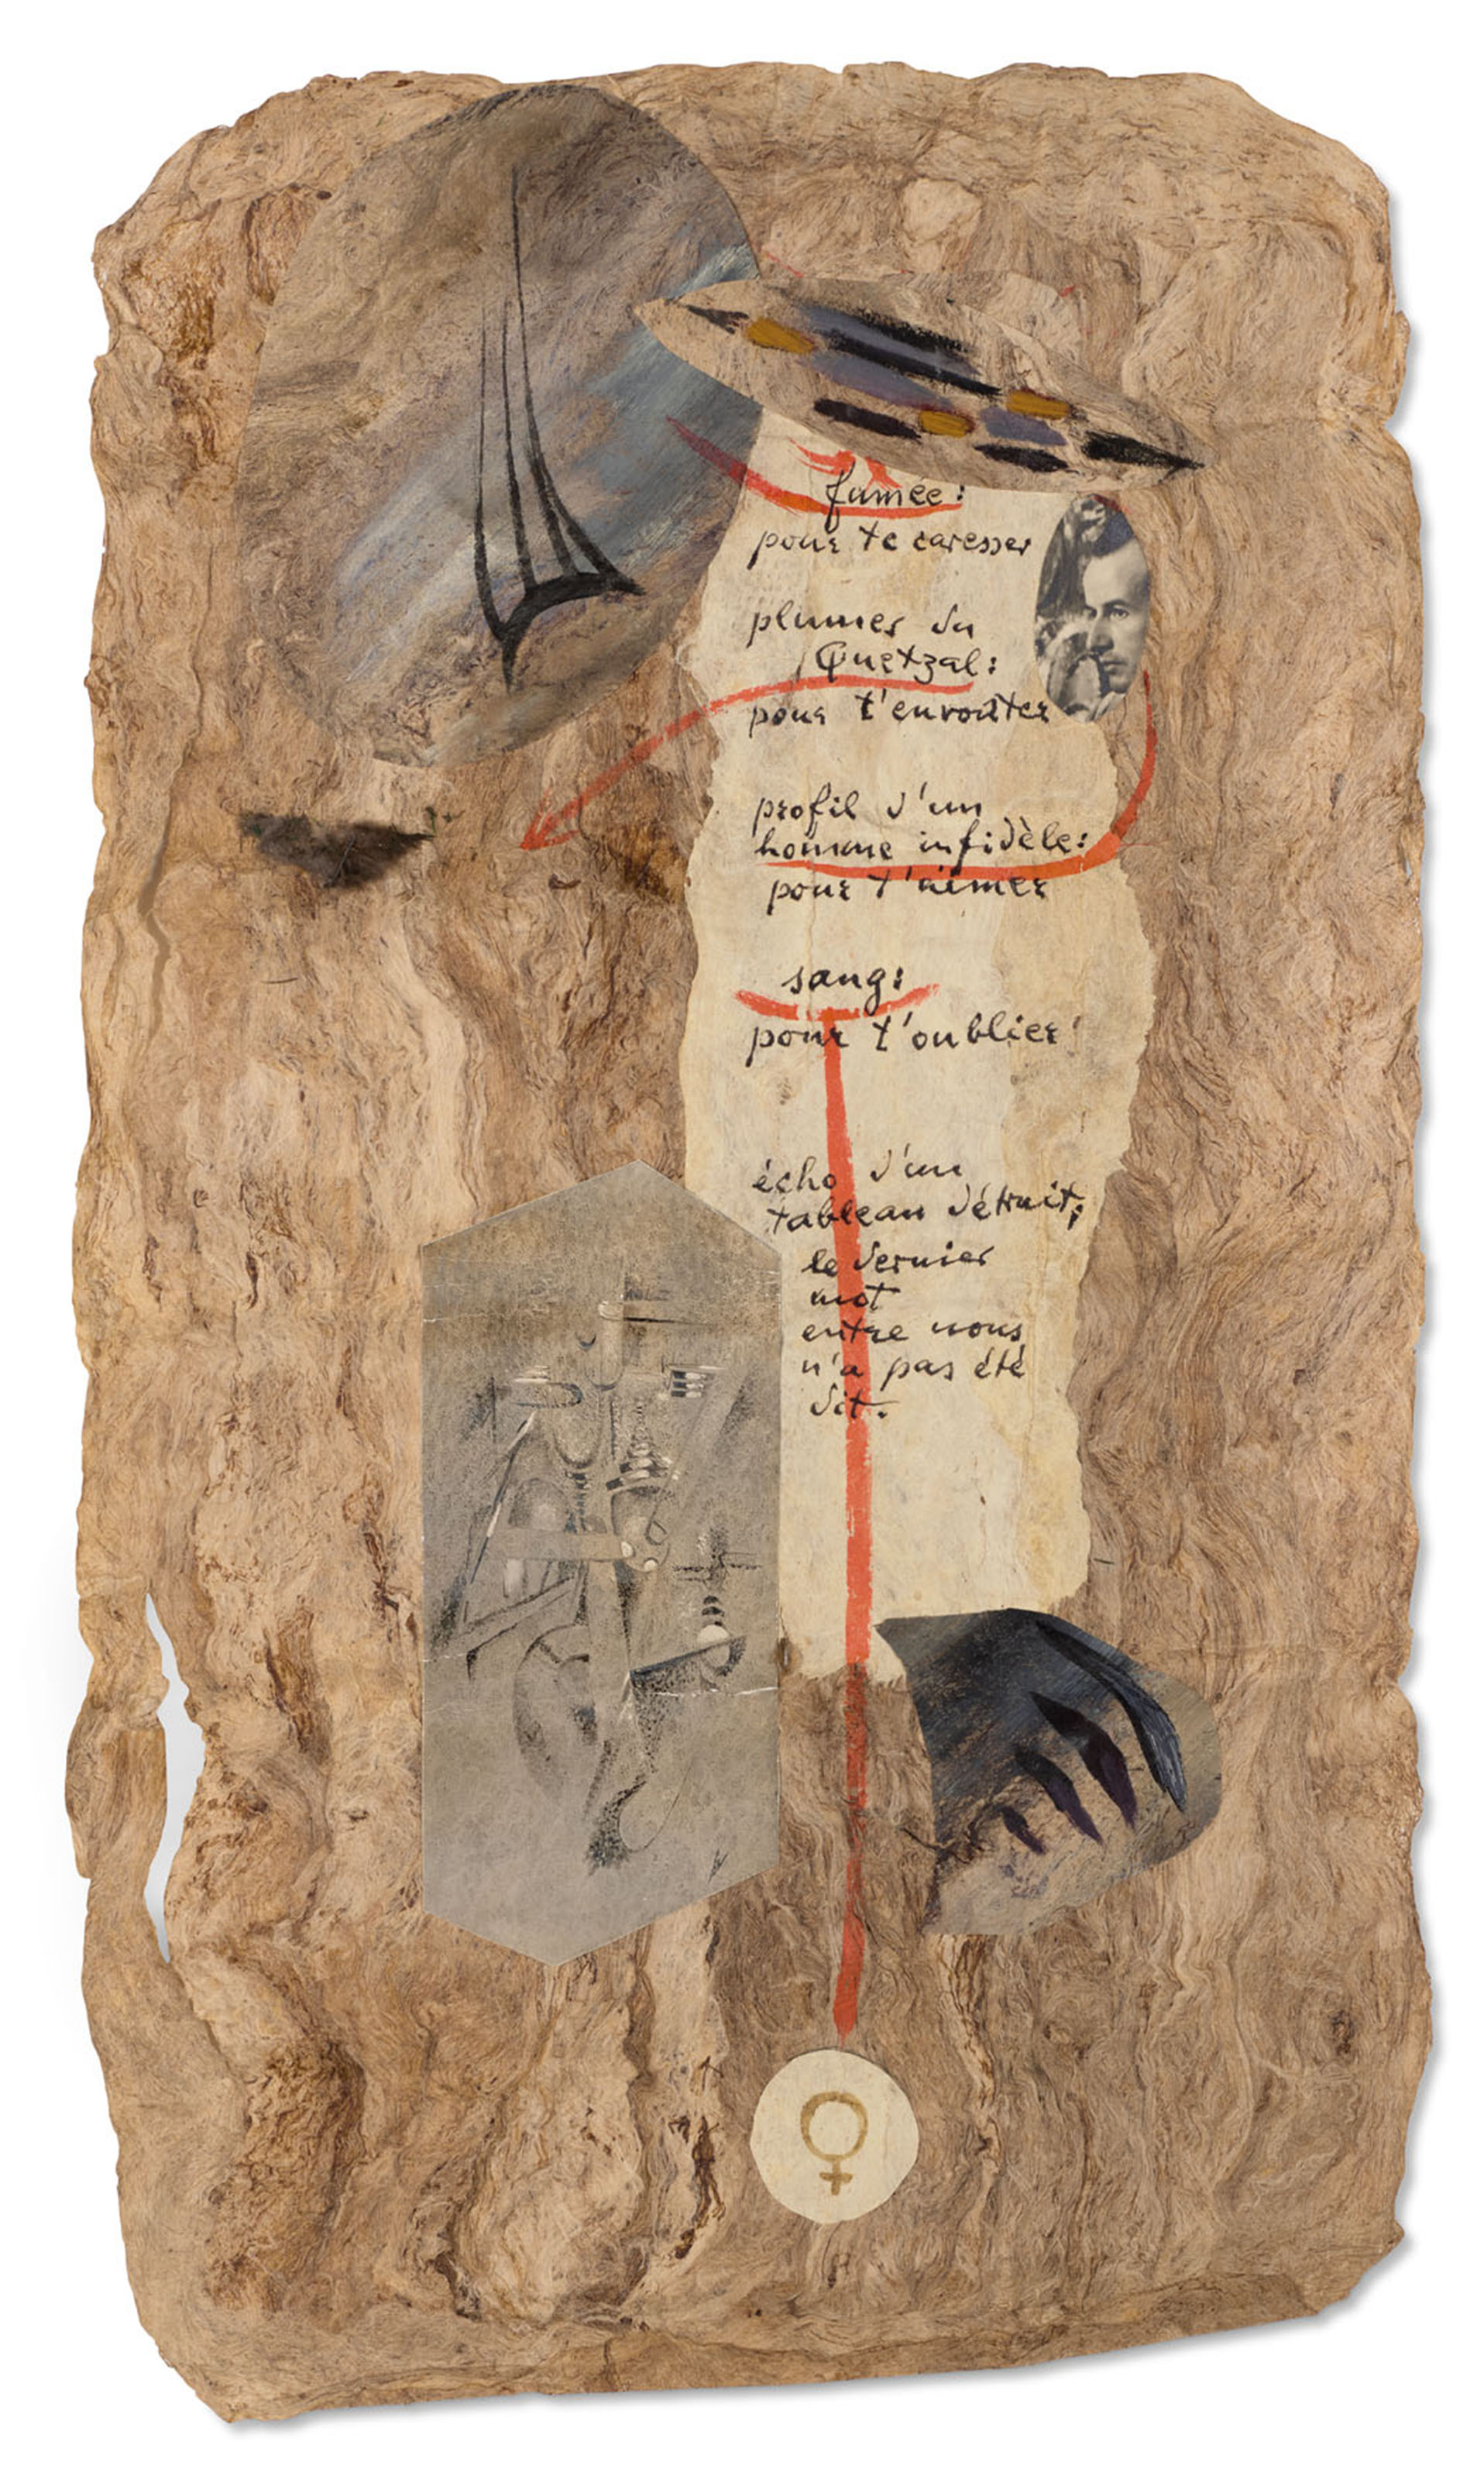 fumée:
pour te caresser
plumes du
Quetzal:
pour t'envoûter
profil d'un
homme infidèle:
pour t'aimer
sang:
pour t'oublier
écho d'un
tableau détruit;
le dernier
mot
entre nous
n'a pas été
dit.
♀